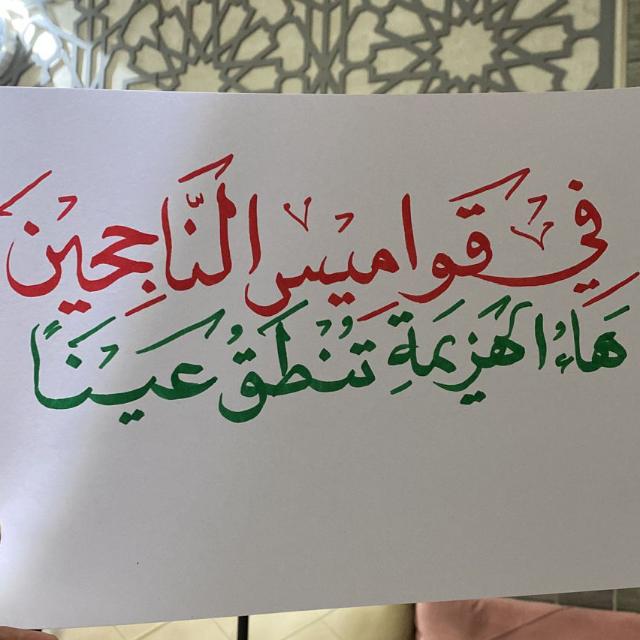 في قواميس النَّاجحين
هَاءُ الهَزيمَةِ تُنطَقُ عَينَاً